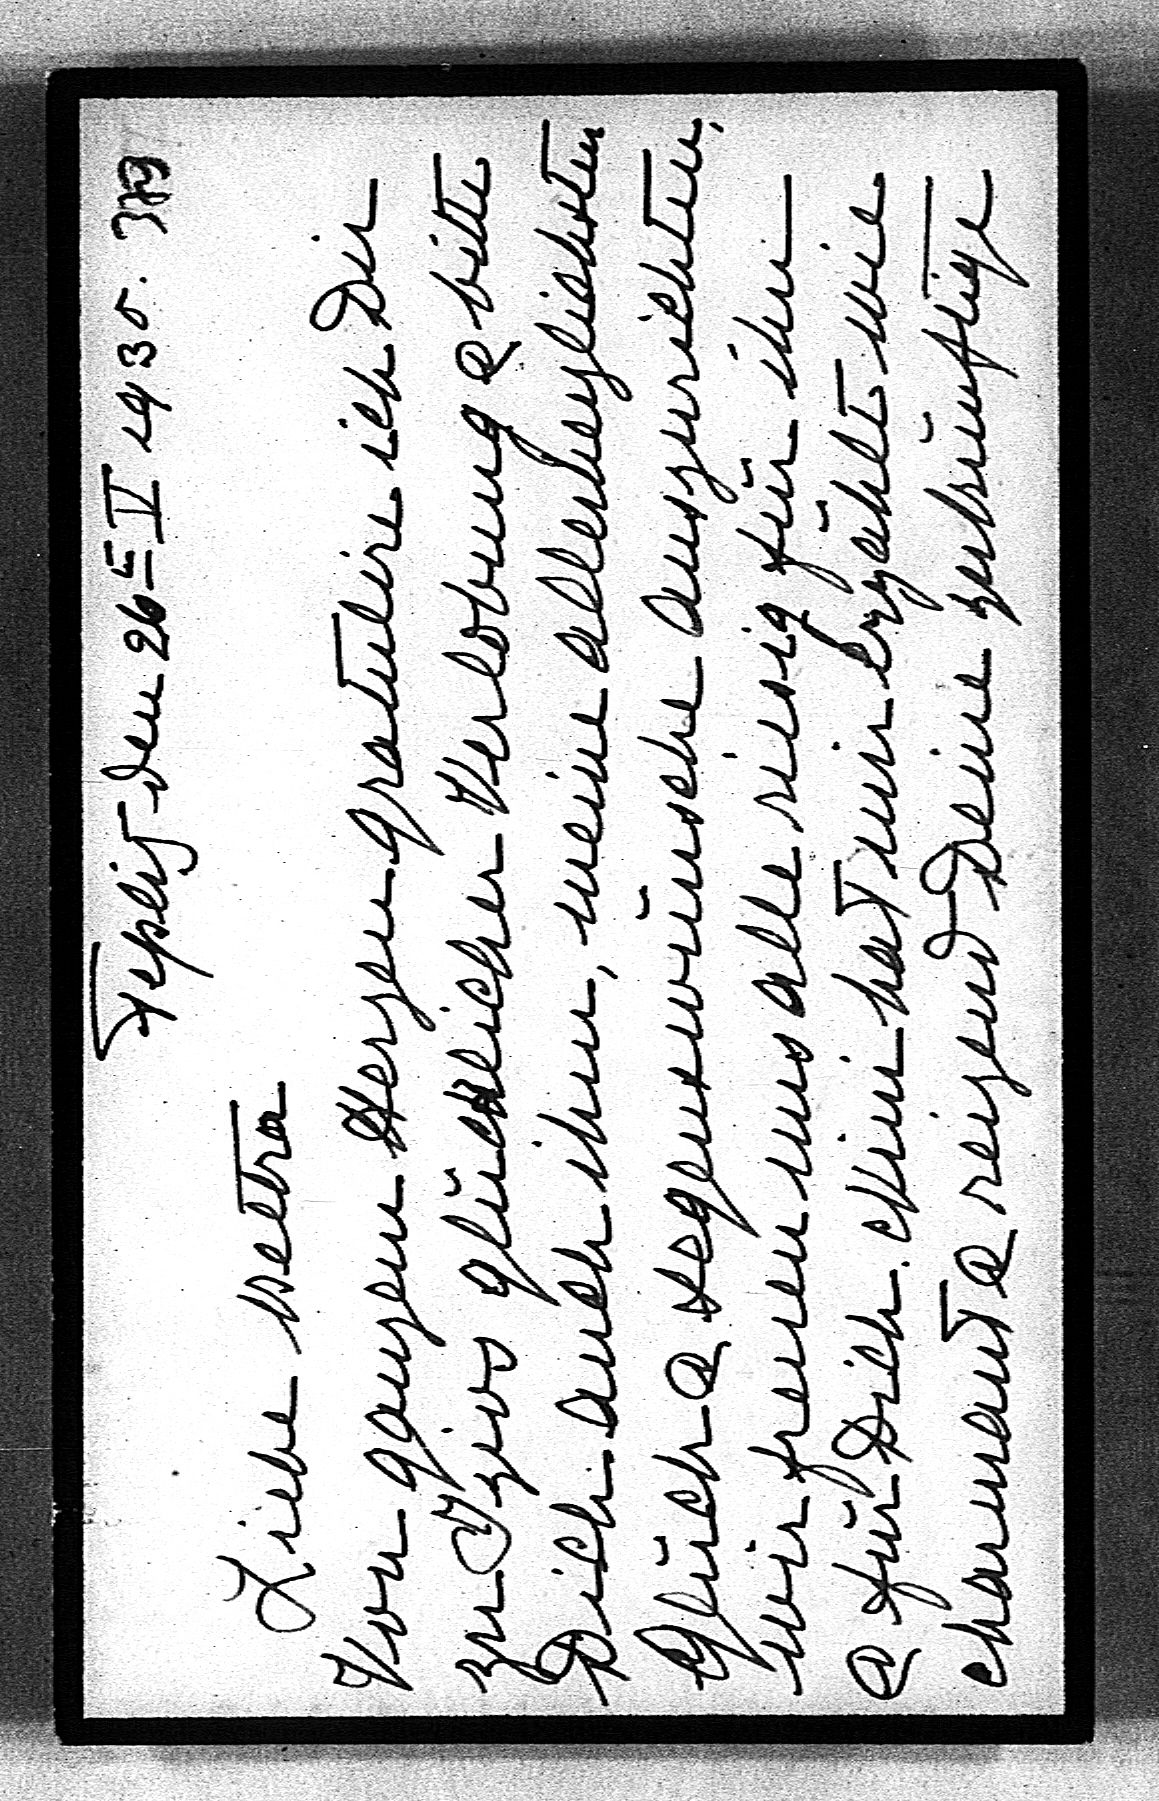 Teplitz den 26ten V 1935.
Liebe Petra
Von ganzen Herzen gratulire ich Dir
zu glücklicher Verlobung & bitte
Dich auch ihm, meine allerherzlichsten
Glück & Segenswünsche auszurichten,
wir freuen uns alle riesig für ihn
& für Dich. hat mir erzählt wie
charmant & reizend Deine zukünftige